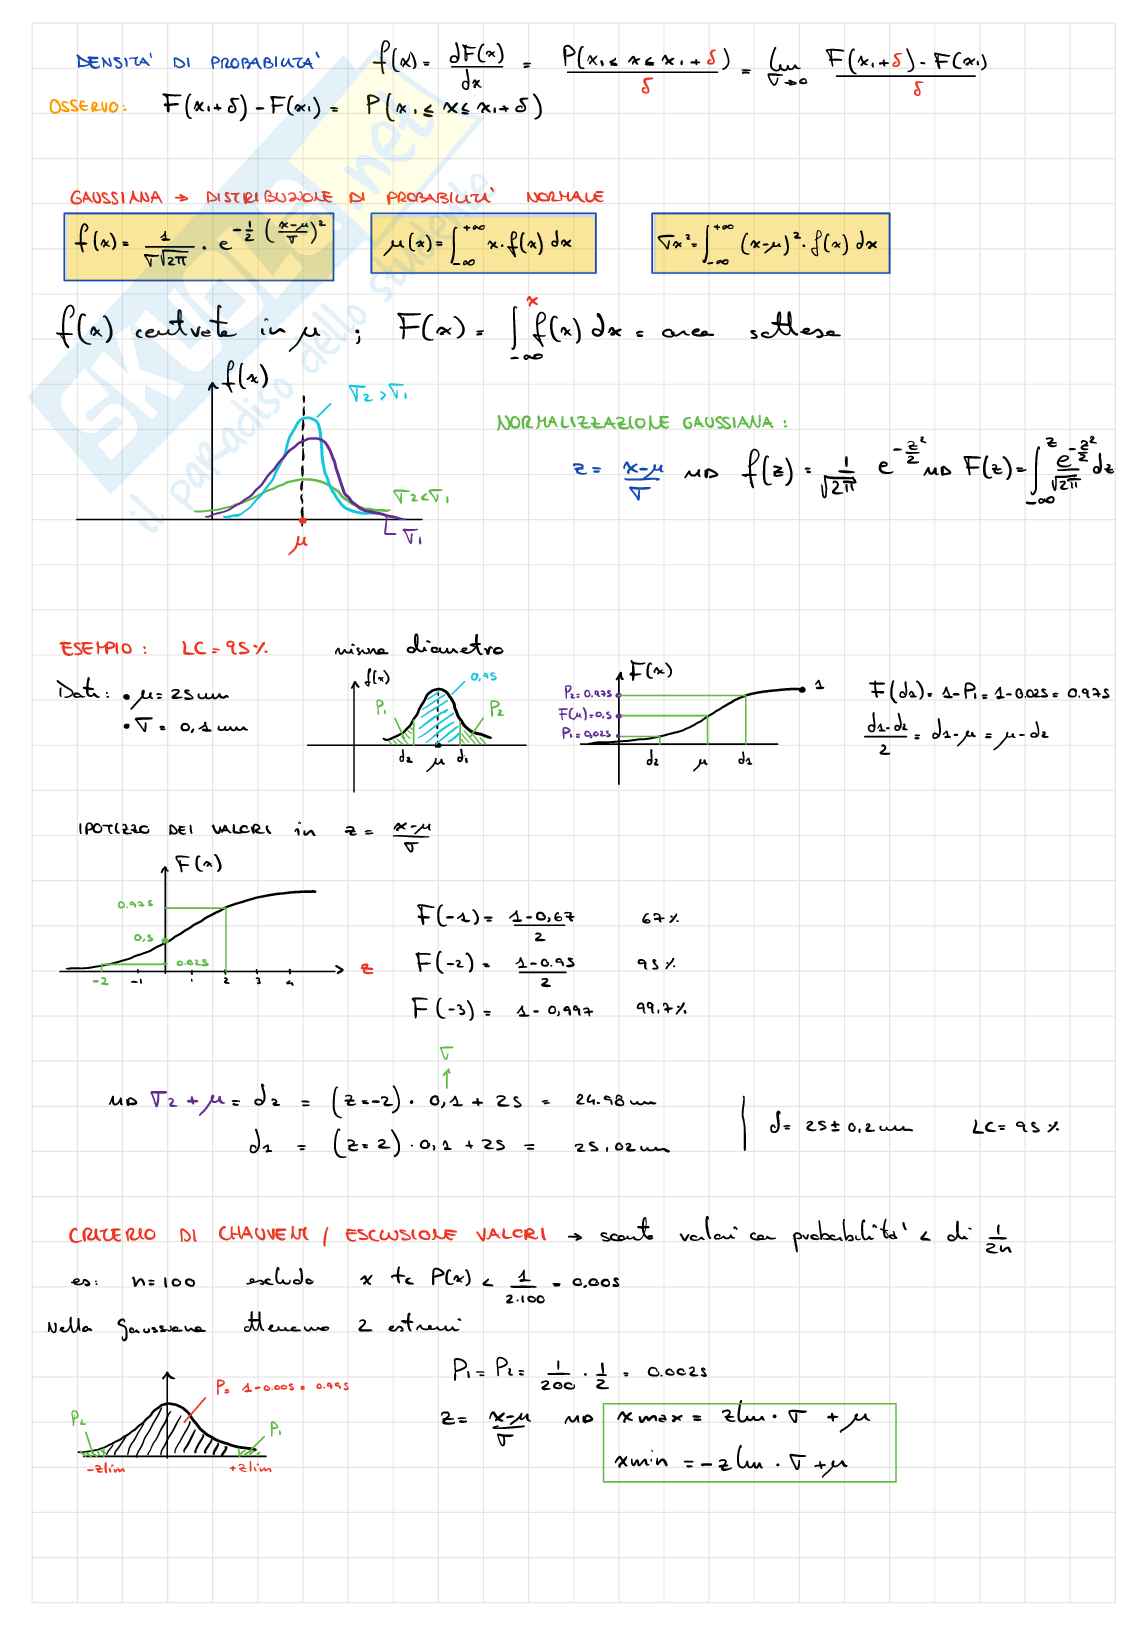 DENSITA' DI PROBABILITA' f(x) = dF(x)/dx = P(x₁ ≤ x ≤ x₁ + δ)/δ = lim σ→0 F(x₁+δ) - F(x₁)/δ
OSSERVO: F(x₁+δ) - F(x₁) = P(x₁ ≤ x ≤ x₁ + δ)
GAUSSIANA → DISTRIBUZIONE DI PROBABILITA' NORMALE
f(x) = 1/σ√2π · e^-1/2 (x-μ/σ)² μ(x) = ∫-∞ +∞ x · f(x) dx σx² = ∫-∞ +∞ (x-μ)² · f(x) dx
f(x) centrata in μ ; F(x) = ∫-∞ x f(x) dx = area sottesa
f(x)
σ2 > σ1
NORMALIZZAZIONE GAUSSIANA :
z = x-μ/σ f(z) = 1/√2π e^-z²/2 F(z) = ∫-∞ z e^-z²/2/√2π dz
σ2 < σ1
σ1
μ
ESEMPIO : LC = 95% misura diametro
Dati : • μ = 25 mm
• σ = 0,1 mm
f(x) 0,95 P1 P2 d2 μ d1
F(x) 1 P2 = 0.975 F(μ) = 0,5 P1 = 0,025 d2 μ d1
F(d1) = 1 - P1 = 1 - 0.025 = 0.975
d1-d2/2 = d1 - μ = μ - d2
IPOTIZZO DEI VALORI in z = x-μ/σ
F(x)
0.975
0,5
0.025
-2 -1 1 2 3 4 z
F(-1) = 1-0,67/2 67%
F(-2) = 1-0.95/2 95%
F(-3) = 1 - 0,997 99,7%
σ
↑
σz + μ = d2 = (z=-2) · 0,1 + 25 = 24.98 mm
d1 = (z=2) · 0,1 + 25 = 25,02 mm
d = 25 ± 0,2 mm LC = 95%
CRITERIO DI CHAUVENT / ESCLUSIONE VALORI → scarto valori con probabilità' < di 1/2n
es: n=100 escludo x tc P(x) < 1/2·100 = 0.005
Nella Gaussiana otteniamo 2 estremi
P1 = P2 = 1/200 · 1/2 = 0.0025
P = 1-0.005 = 0.995
P2 P1
-zlim +zlim
z = x-μ/σ x max = zlim · σ + μ
x min = -zlim · σ + μ
SKUOLA.net
il paradiso dello studente